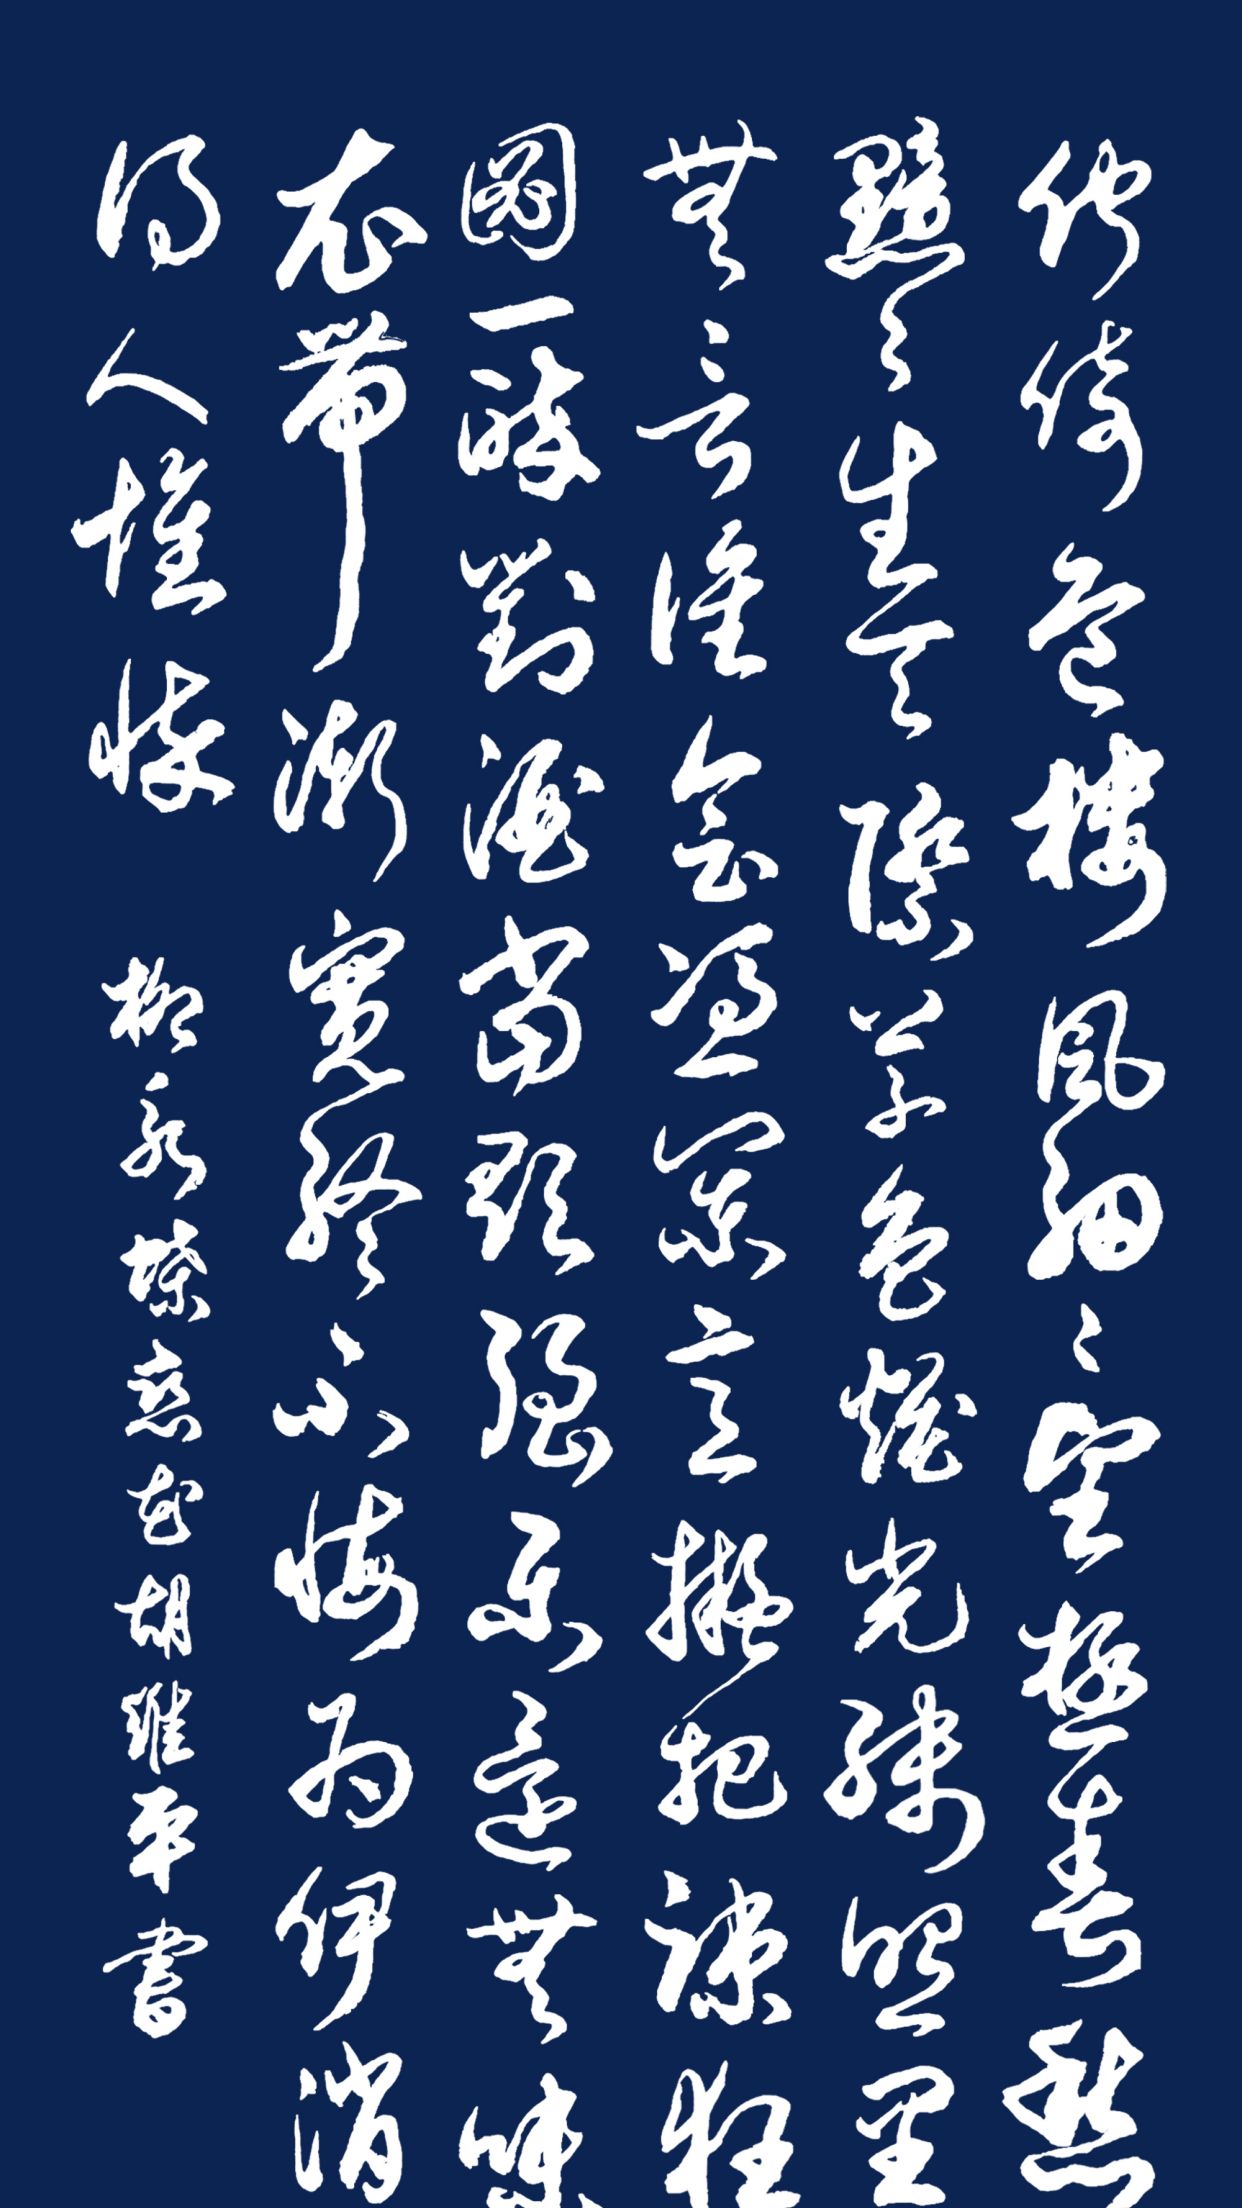 佇倚危樓風細〻望極春愁
黯〻生天際草色煙光殘照里
無言誰會憑闌意擬把疎狂
圖一醉對酒當歌強樂還無味
衣帶漸寬終不悔為伊消
得人憔悴 柳永蝶恋花胡維平書